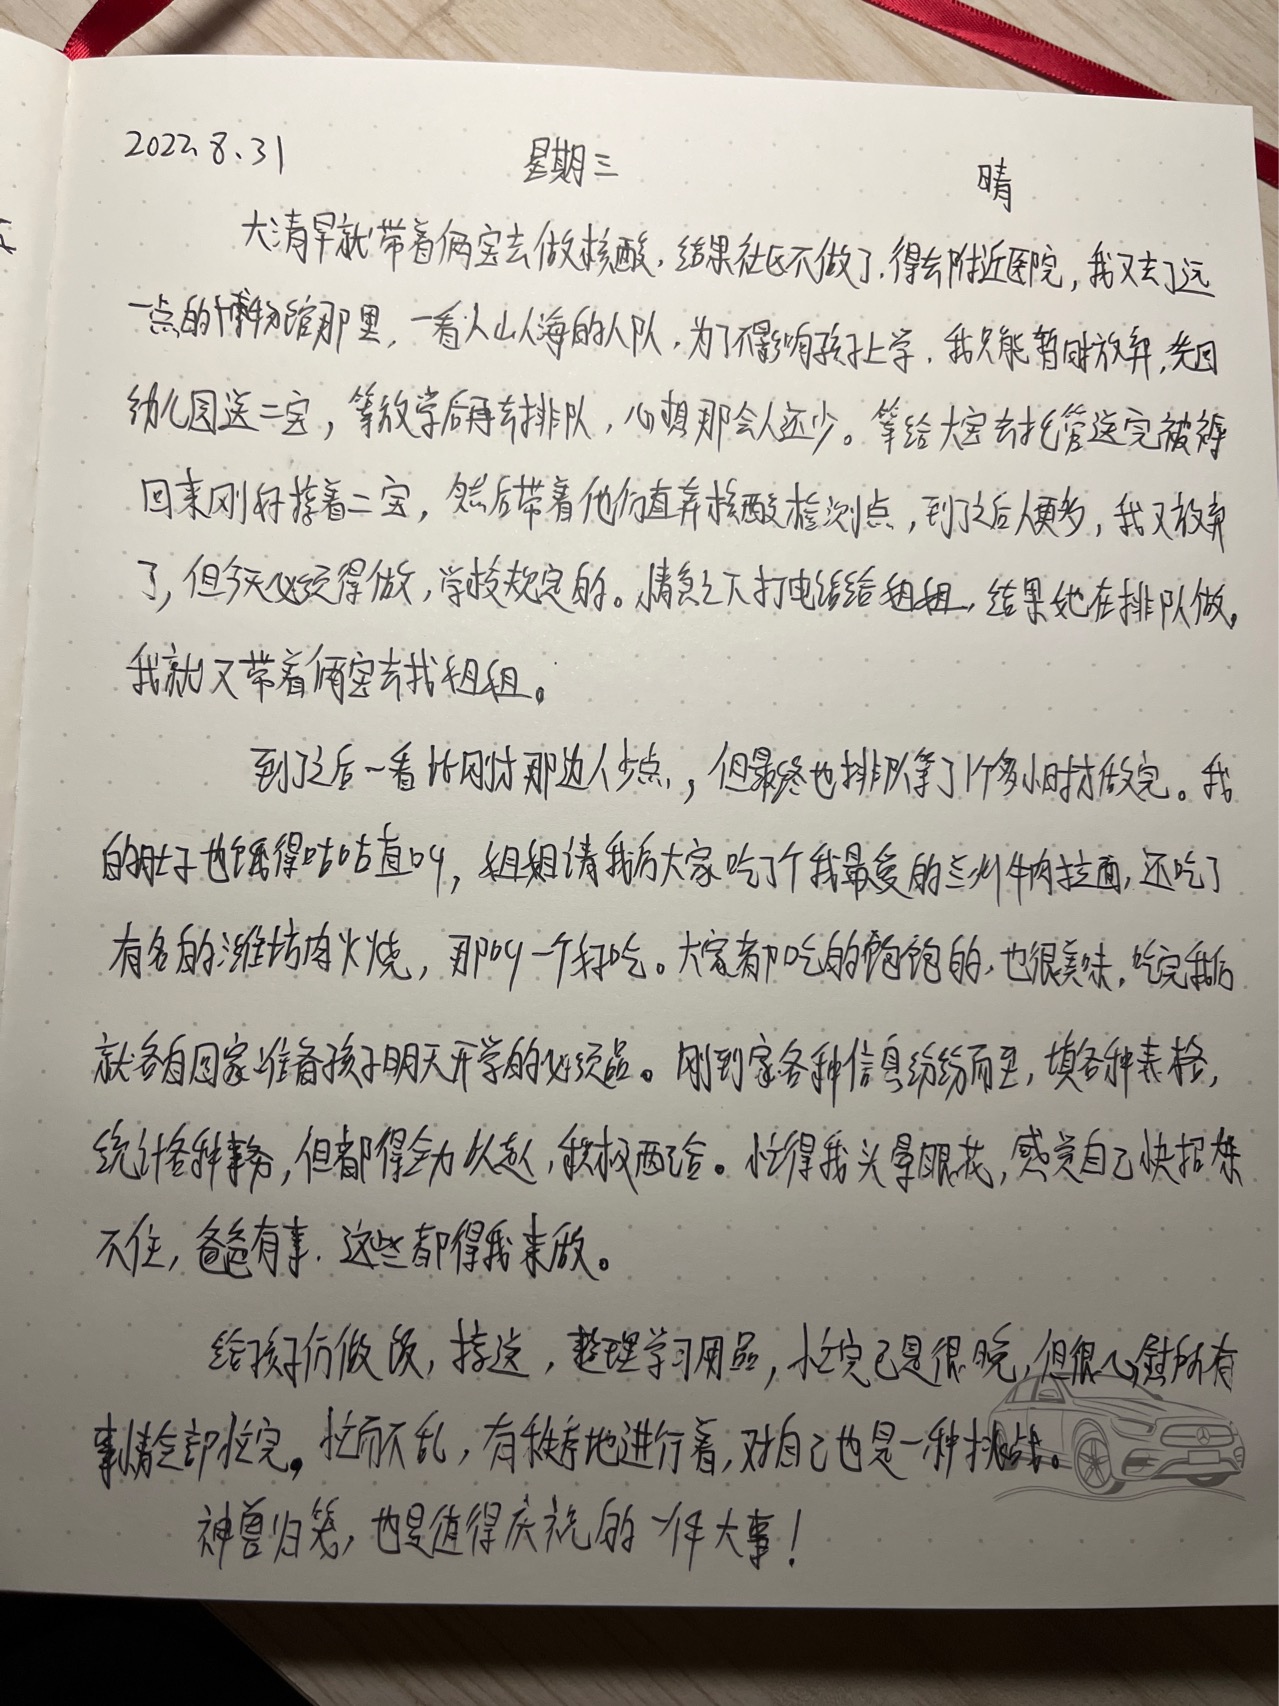 2022.8.31 星期三 晴
大清早就带着俩宝去做核酸，结果社区不做了，得去附近医院，我又去了远
一点的博物馆那里，一看人山人海的人队，为了不影响孩子上学，我只能暂时放弃，先回
幼儿园送二宝，等放学后再去排队，心想那会人还少。等给大宝去托管送完被褥
回来刚好接着二宝，然后带着他们直奔核酸检测点，到了之后人更多，我又放弃
了，但今天必须得做，学校规定的。情急之下打电话给姐姐，结果她在排队做，
我就又带着俩宝去找姐姐。
到了之后一看比刚才那边人少点，但最终也排队等了1个多小时才做完。我
的肚子也饿得咕咕直叫，姐姐请我们大家吃了个我最爱的兰州牛肉拉面，还吃了
有名的潍坊肉火烧，那叫一个好吃。大家都吃的饱饱的，也很美味，吃完我们
就各自回家准备孩子明天开学的必须品。刚到家各种信息纷纷而至，填各种表格，
统计各种事务，但都得全力以赴，积极配合。忙得我头晕眼花，感觉自己快招架
不住，爸爸有事，这些都得我来做。
给孩子们做饭，接送，整理学习用品，忙完已是很晚，但很心慰所有
事情全部忙完。忙而不乱，有秩序地进行着，对自己也是一种挑战。
神兽归笼，也是值得庆祝的一件大事！